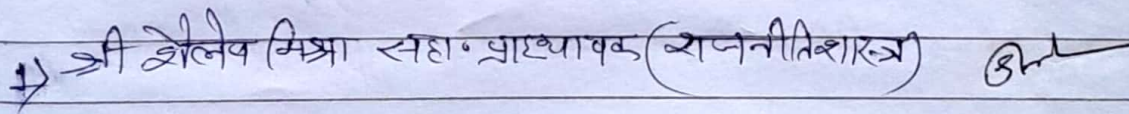 1) श्री शैलेष मिश्रा सहा. प्राध्यापक (राजनीतिशास्त्र)